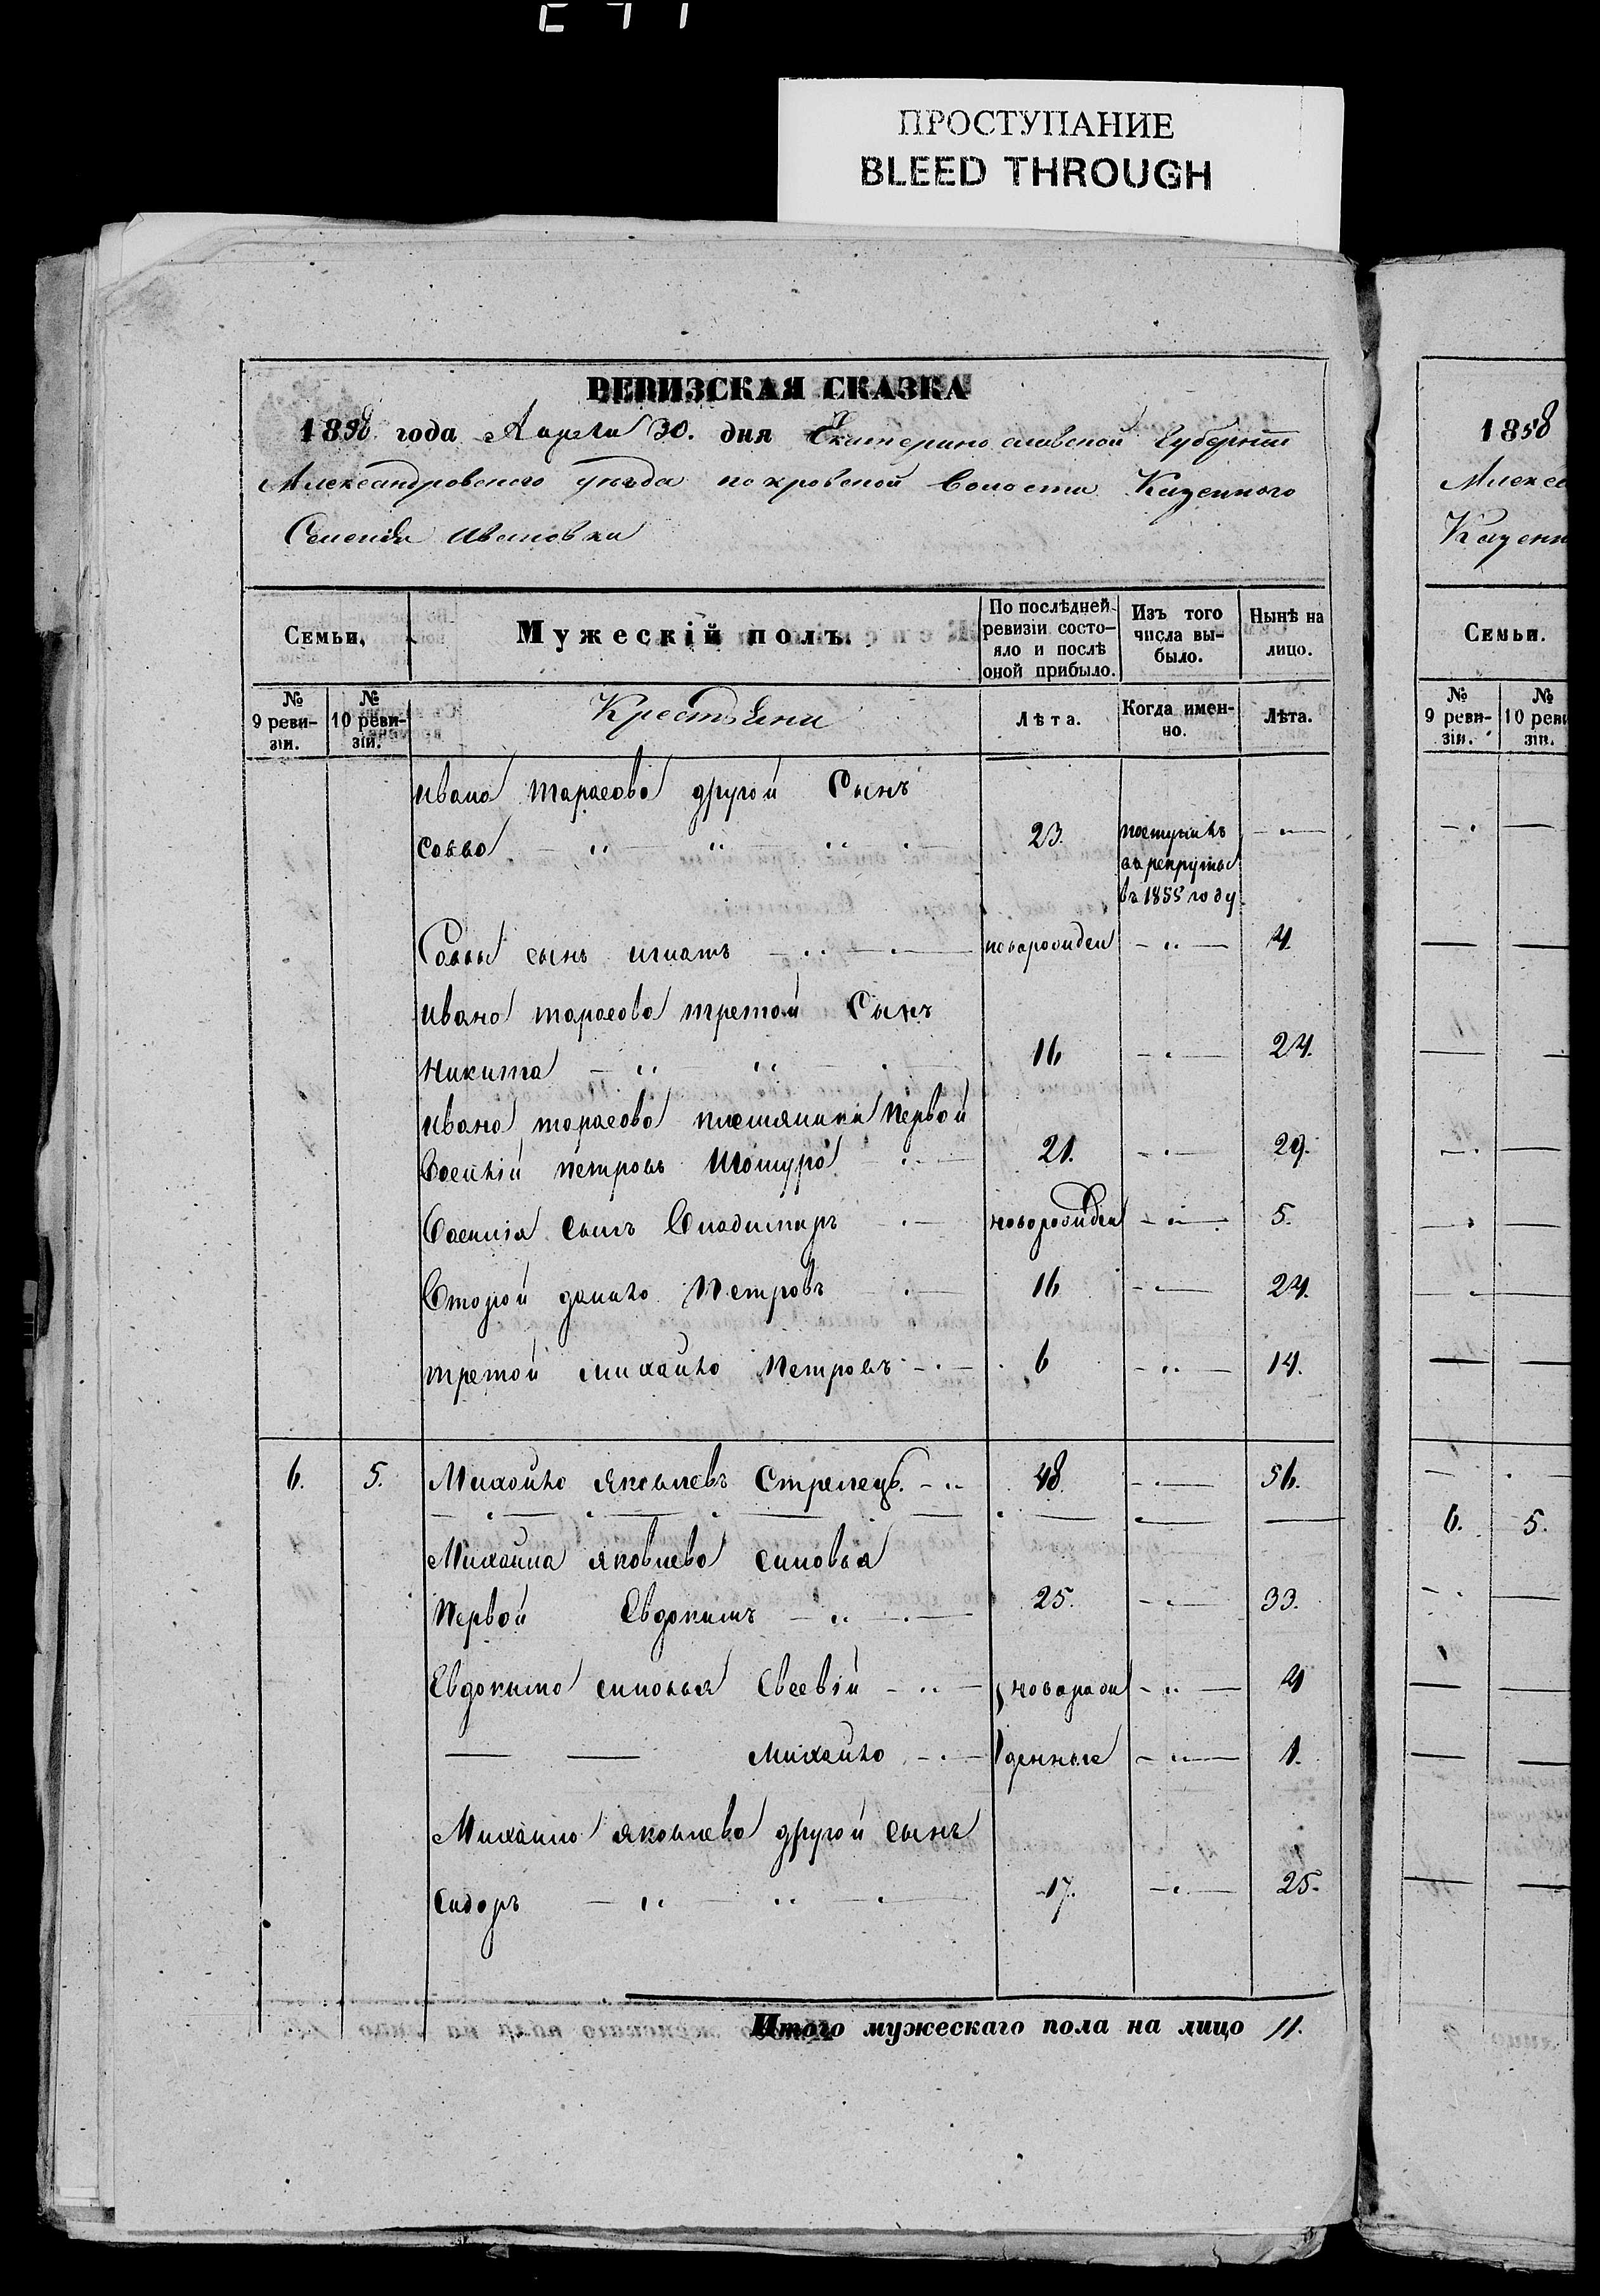 ПРОСТУПАНИЕ
BLEED THROUGH
РЕВИЗСКАЯ СКАЗКА
1858 года Апреля 30. дня Екатеринославской Губернии
Александровского уезда покровской Волости Казенного
Селения Ивановки
Семьи, Мужескій полъ. По послѣдней ревизіи состояло и послѣ оной прибыло. Изъ того числа выбыло. Нынѣ на лицо.
№ 9 ревизіи. № 10 ревизіи. Крестьяни Лѣта. Когда именно. Лѣта.
Ивана Тарасова другой Сынъ
Савва 23. поступилъ
въ рекруты
въ 1855 году
Саввы сынъ игнатъ новорожден 4.
Ивана тарасова третой Сынъ
Никита 16 24.
Ивана тарасова племяники Первой
Василій петровъ 21. 29.
Василія сынъ Владимиръ новорожден 5.
Второй данило Петровъ 16 24.
третой михайло Петровъ 6 14.
6. 5. Михайло яковлевъ Стрелецъ. 48. 56.
Михайла яковлева синовья
Первой Евдокимъ 25. 33.
Евдокима синовья Евсевій новорож 4
Михайло денные 1.
Михайла яковлева другой сынъ
Сидоръ 17. 25.
Итого мужескаго пола на лицо 11.
1858
Алекса
Казенн
Семьи.
№ 9 ревизіи. № 10 реви
зіи.
6. 5.